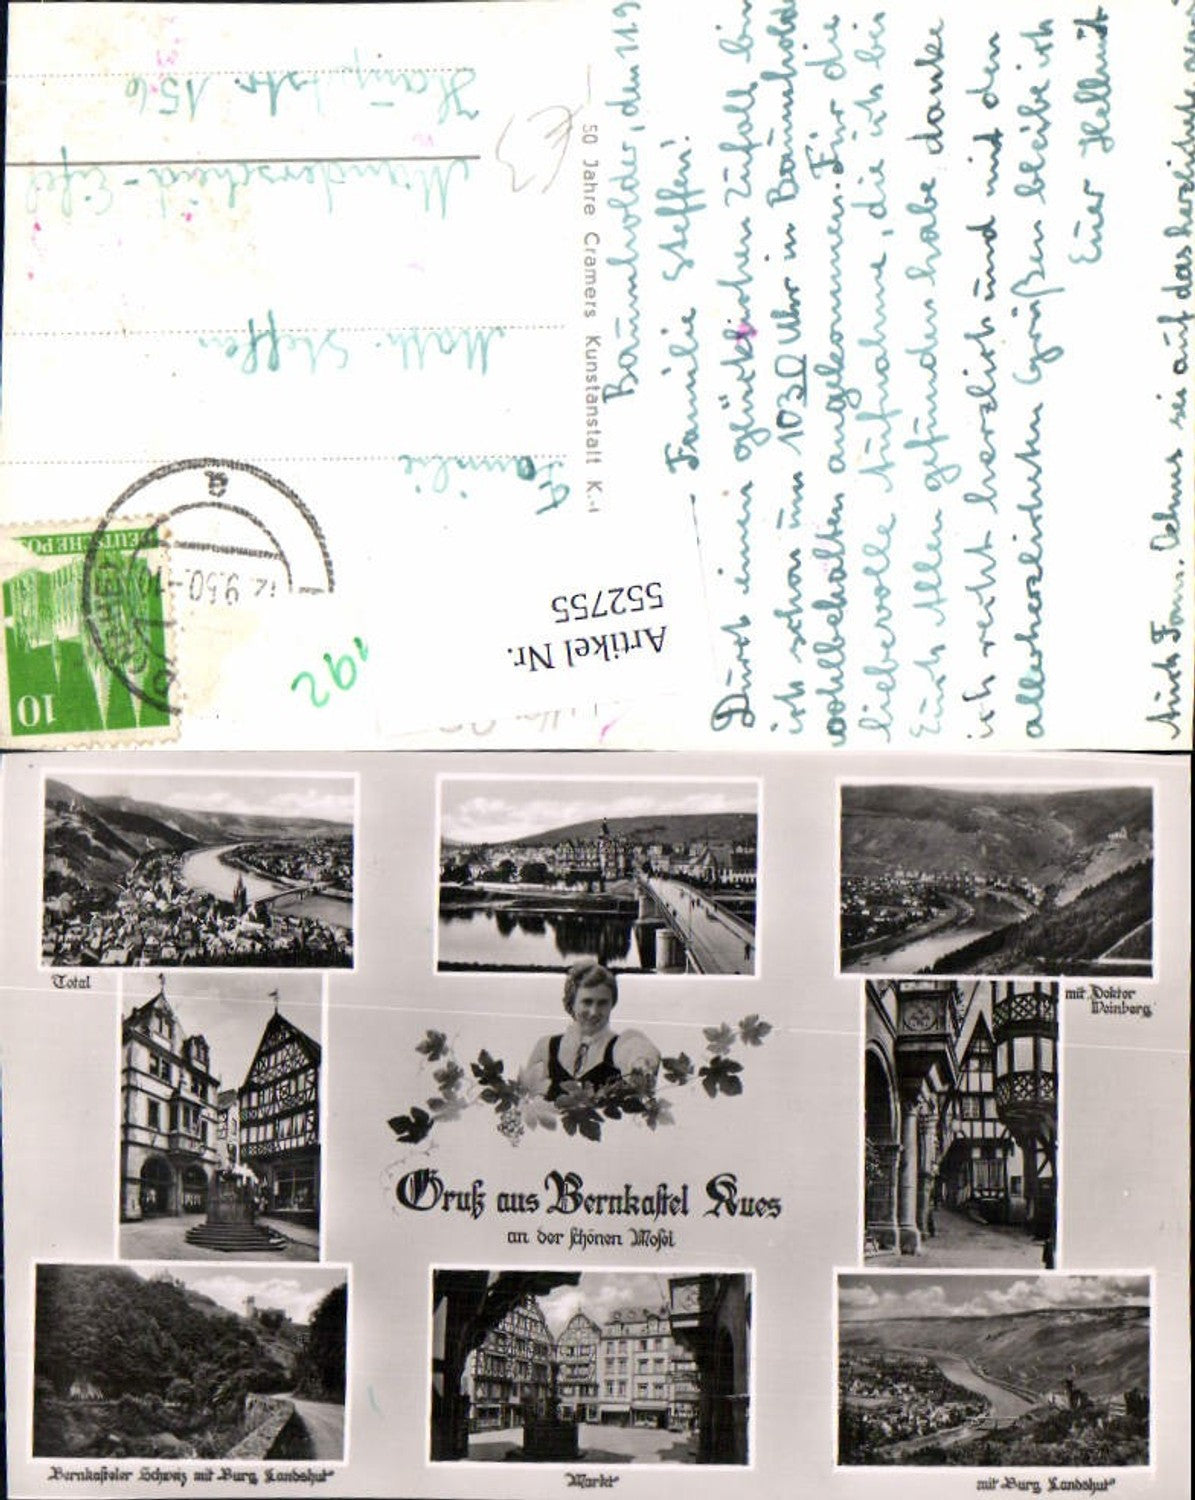 Baumholder, den 11.9
Familie Steffen!
Durch einen glücklichen Zufall bin
ich schon um 1030 Uhr in Baumholder
wohlbehalten angekommen. Für die
liebevolle Aufnahme, die ich bei
Euch Allen gefunden habe danke
ich recht herzlich und mit den
allerherzlichsten Grüßen bleibe ich
Euer Hellmut
Auch Fam. sei auf das herzlichste
50 Jahre Cramers Kunstanstalt K.-
Familie
Math. Steffen
Manderscheid-Eifel
Hauptstr. 156
DEUTSCHE PO
10
12.9.50.-10
a
Artikel Nr.
552755
192
€3
Total
mit "Doktor
Weinberg"
Gruß aus Bernkastel Kues
an der schönen Mosel
Bernkasteler Schweiz mit Burg Landshut
Markt
mit Burg Landshut